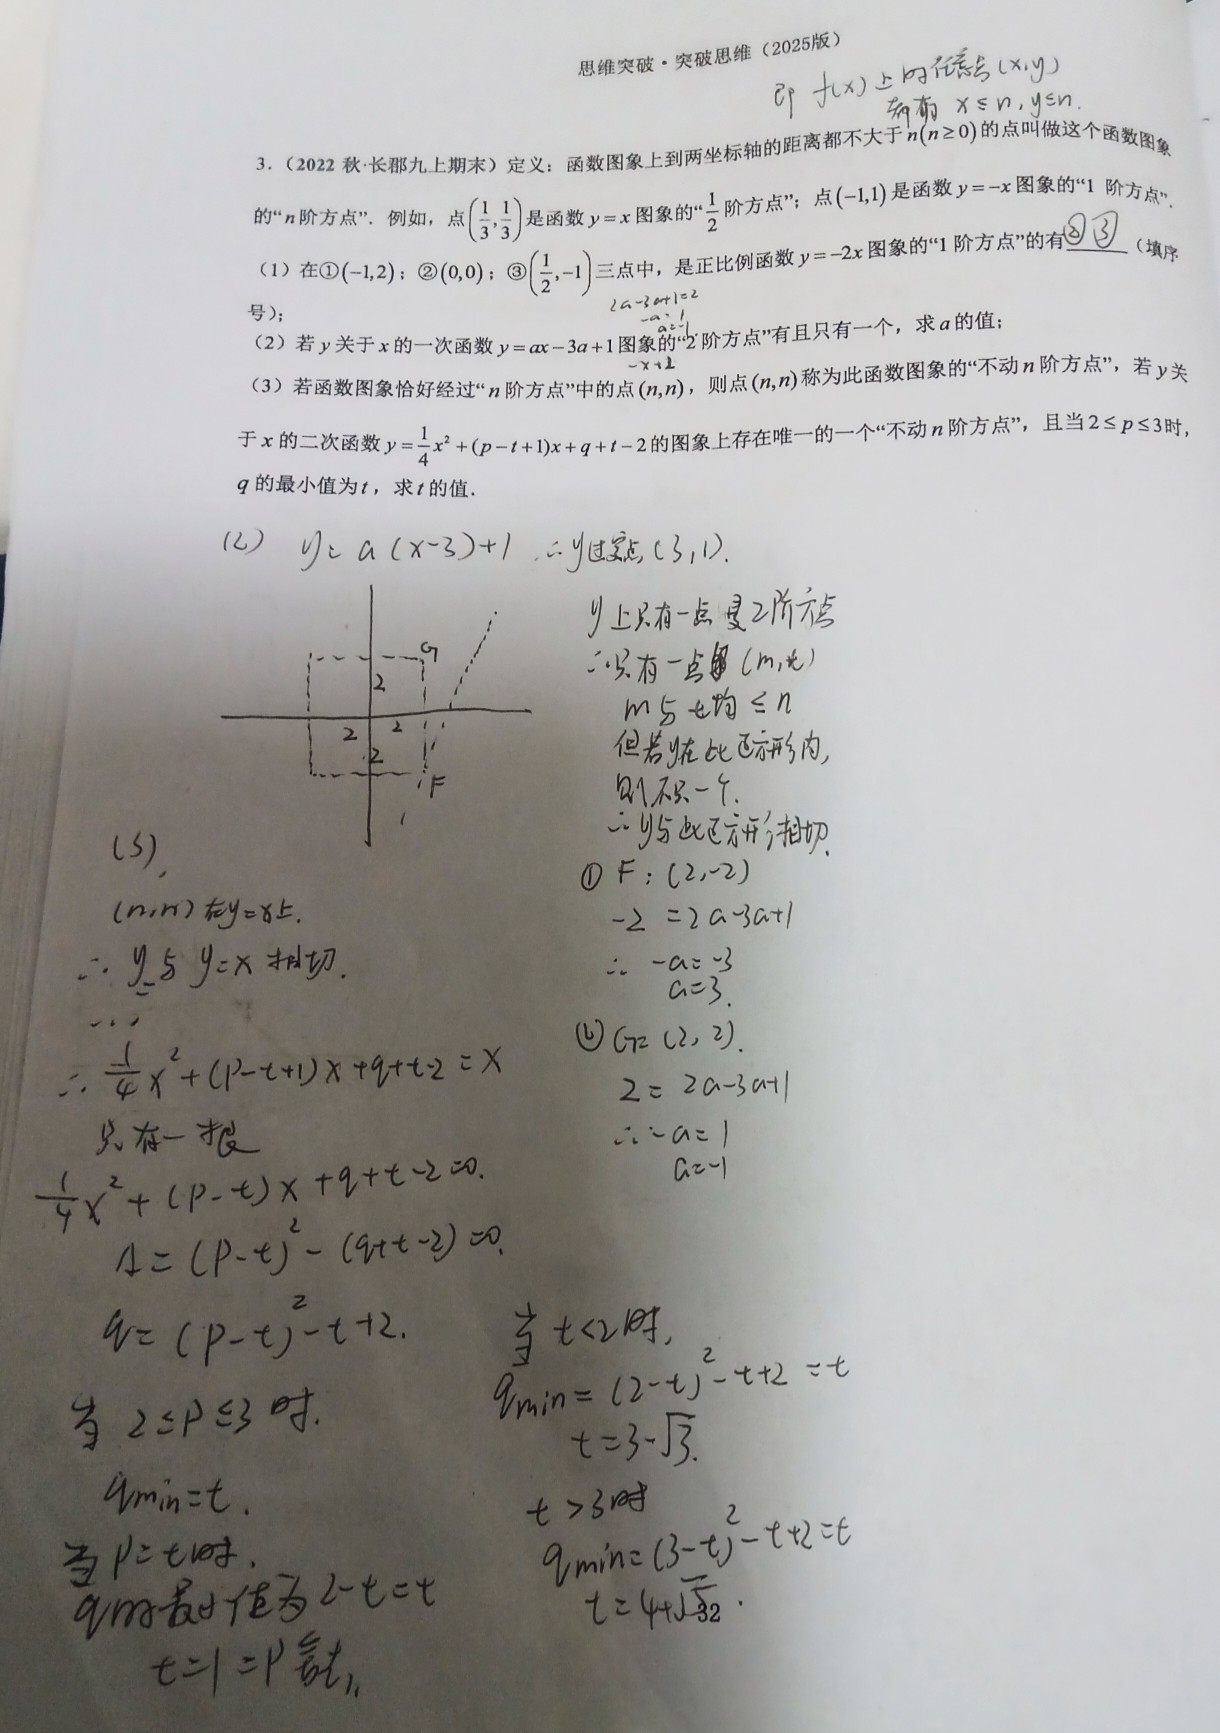 思维突破·突破思维（2025版）
即 f(x)上的任意点(x,y)
都有 x≤n,y≤n.
3.（2022 秋·长郡九上期末）定义：函数图象上到两坐标轴的距离都不大于n(n≥0)的点叫做这个函数图象
的“n阶方点”. 例如，点(1/3,1/3)是函数y=x图象的“1/2阶方点”；点(-1,1)是函数y=-x图象的“1 阶方点”.
（1）在①(-1,2)；②(0,0)；③(1/2,-1)三点中，是正比例函数y=-2x图象的“1阶方点”的有②③（填序
号）；
2a-3a+1=2
-a=1
a=-1.
（2）若y关于x的一次函数y=ax-3a+1图象的“2阶方点”有且只有一个，求a的值；
-x+2
（3）若函数图象恰好经过“n阶方点”中的点(n,n)，则点(n,n)称为此函数图象的“不动n阶方点”，若y关
于x的二次函数y=1/4x²+(p-t+1)x+q+t-2的图象上存在唯一的一个“不动n阶方点”，且当2≤p≤3时，
q的最小值为t，求t的值.
(2) y=a(x-3)+1 ∴y过定点(3,1).
G
2
2
2
2
F
y上只有一点是2阶方点
∴只有一点(m,t)
m与t均≤n
但若y在此正方形内,
则不只一个.
∴y与此正方形相切.
① F:(2,-2)
-2=2a-3a+1
∴ -a=-3
a=3.
② G=(2,2).
2=2a-3a+1
∴-a=1
a=-1
(3),
(n,n)在y=x上.
∴ y与y=x相切.
∴ 1/4x²+(p-t+1)x+q+t-2=x
只有一根
1/4x²+(p-t)x+q+t-2=0.
Δ=(p-t)²-(q+t-2)=0.
q=(p-t)²-t+2.
当 2≤p≤3时.
qmin=t.
当p=t时.
q的最小值为2-t=t
t=1=p 舍去,
当t<2时,
qmin=(2-t)²-t+2=t
t=3-√3.
t>3时
qmin=(3-t)²-t+2=t